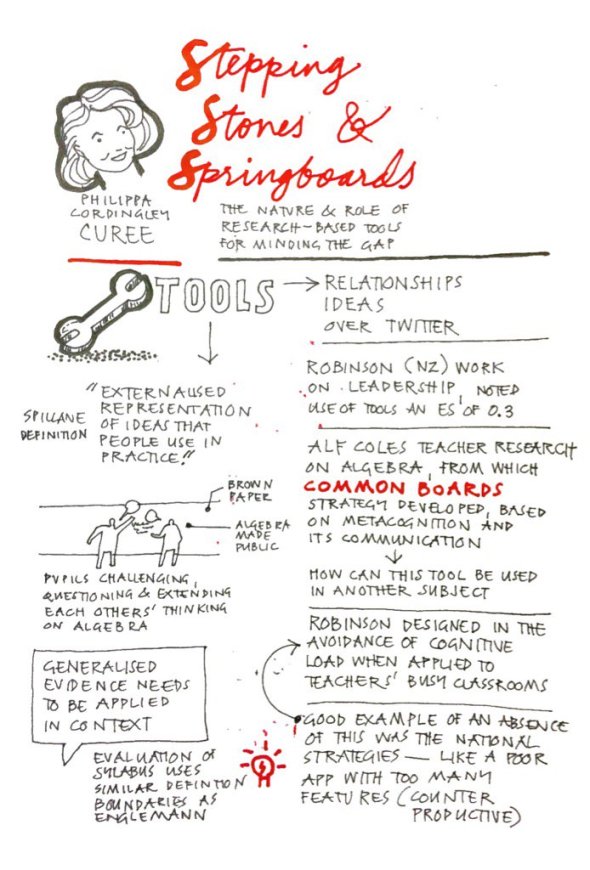 Stepping
Stones &
Springboards
PHILIPPA
CORDINGLEY
CUREE
THE NATURE & ROLE OF
RESEARCH-BASED TOOLS
FOR MINDING THE GAP
TOOLS
RELATIONSHIPS
IDEAS
OVER TWITTER
SPILLANE
DEFINITION
"EXTERNALISED
REPRESENTATION
OF IDEAS THAT
PEOPLE USE IN
PRACTICE."
BROWN
PAPER
ALGEBRA
MADE
PUBLIC
PUPILS CHALLENGING,
QUESTIONING & EXTENDING
EACH OTHERS' THINKING
ON ALGEBRA
GENERALISED
EVIDENCE NEEDS
TO BE APPLIED
IN CONTEXT
EVALUATION OF
SYLABUS USES
SIMILAR DEFINTION
BOUNDARIES AS
ENGLEMANN
ROBINSON (NZ) WORK
ON LEADERSHIP, NOTED
USE OF TOOLS AN ES OF 0.3
ALF COLES TEACHER RESEARCH
ON ALGEBRA, FROM WHICH
COMMON BOARDS
STRATEGY DEVELOPED, BASED
ON METACOGNITION AND
ITS COMMUNICATION
HOW CAN THIS TOOL BE USED
IN ANOTHER SUBJECT
ROBINSON DESIGNED IN THE
AVOIDANCE OF COGNITIVE
LOAD WHEN APPLIED TO
TEACHERS' BUSY CLASSROOMS
GOOD EXAMPLE OF AN ABSENCE
OF THIS WAS THE NATIONAL
STRATEGIES — LIKE A POOR
APP WITH TOO MANY
FEATURES (COUNTER
PRODUCTIVE)